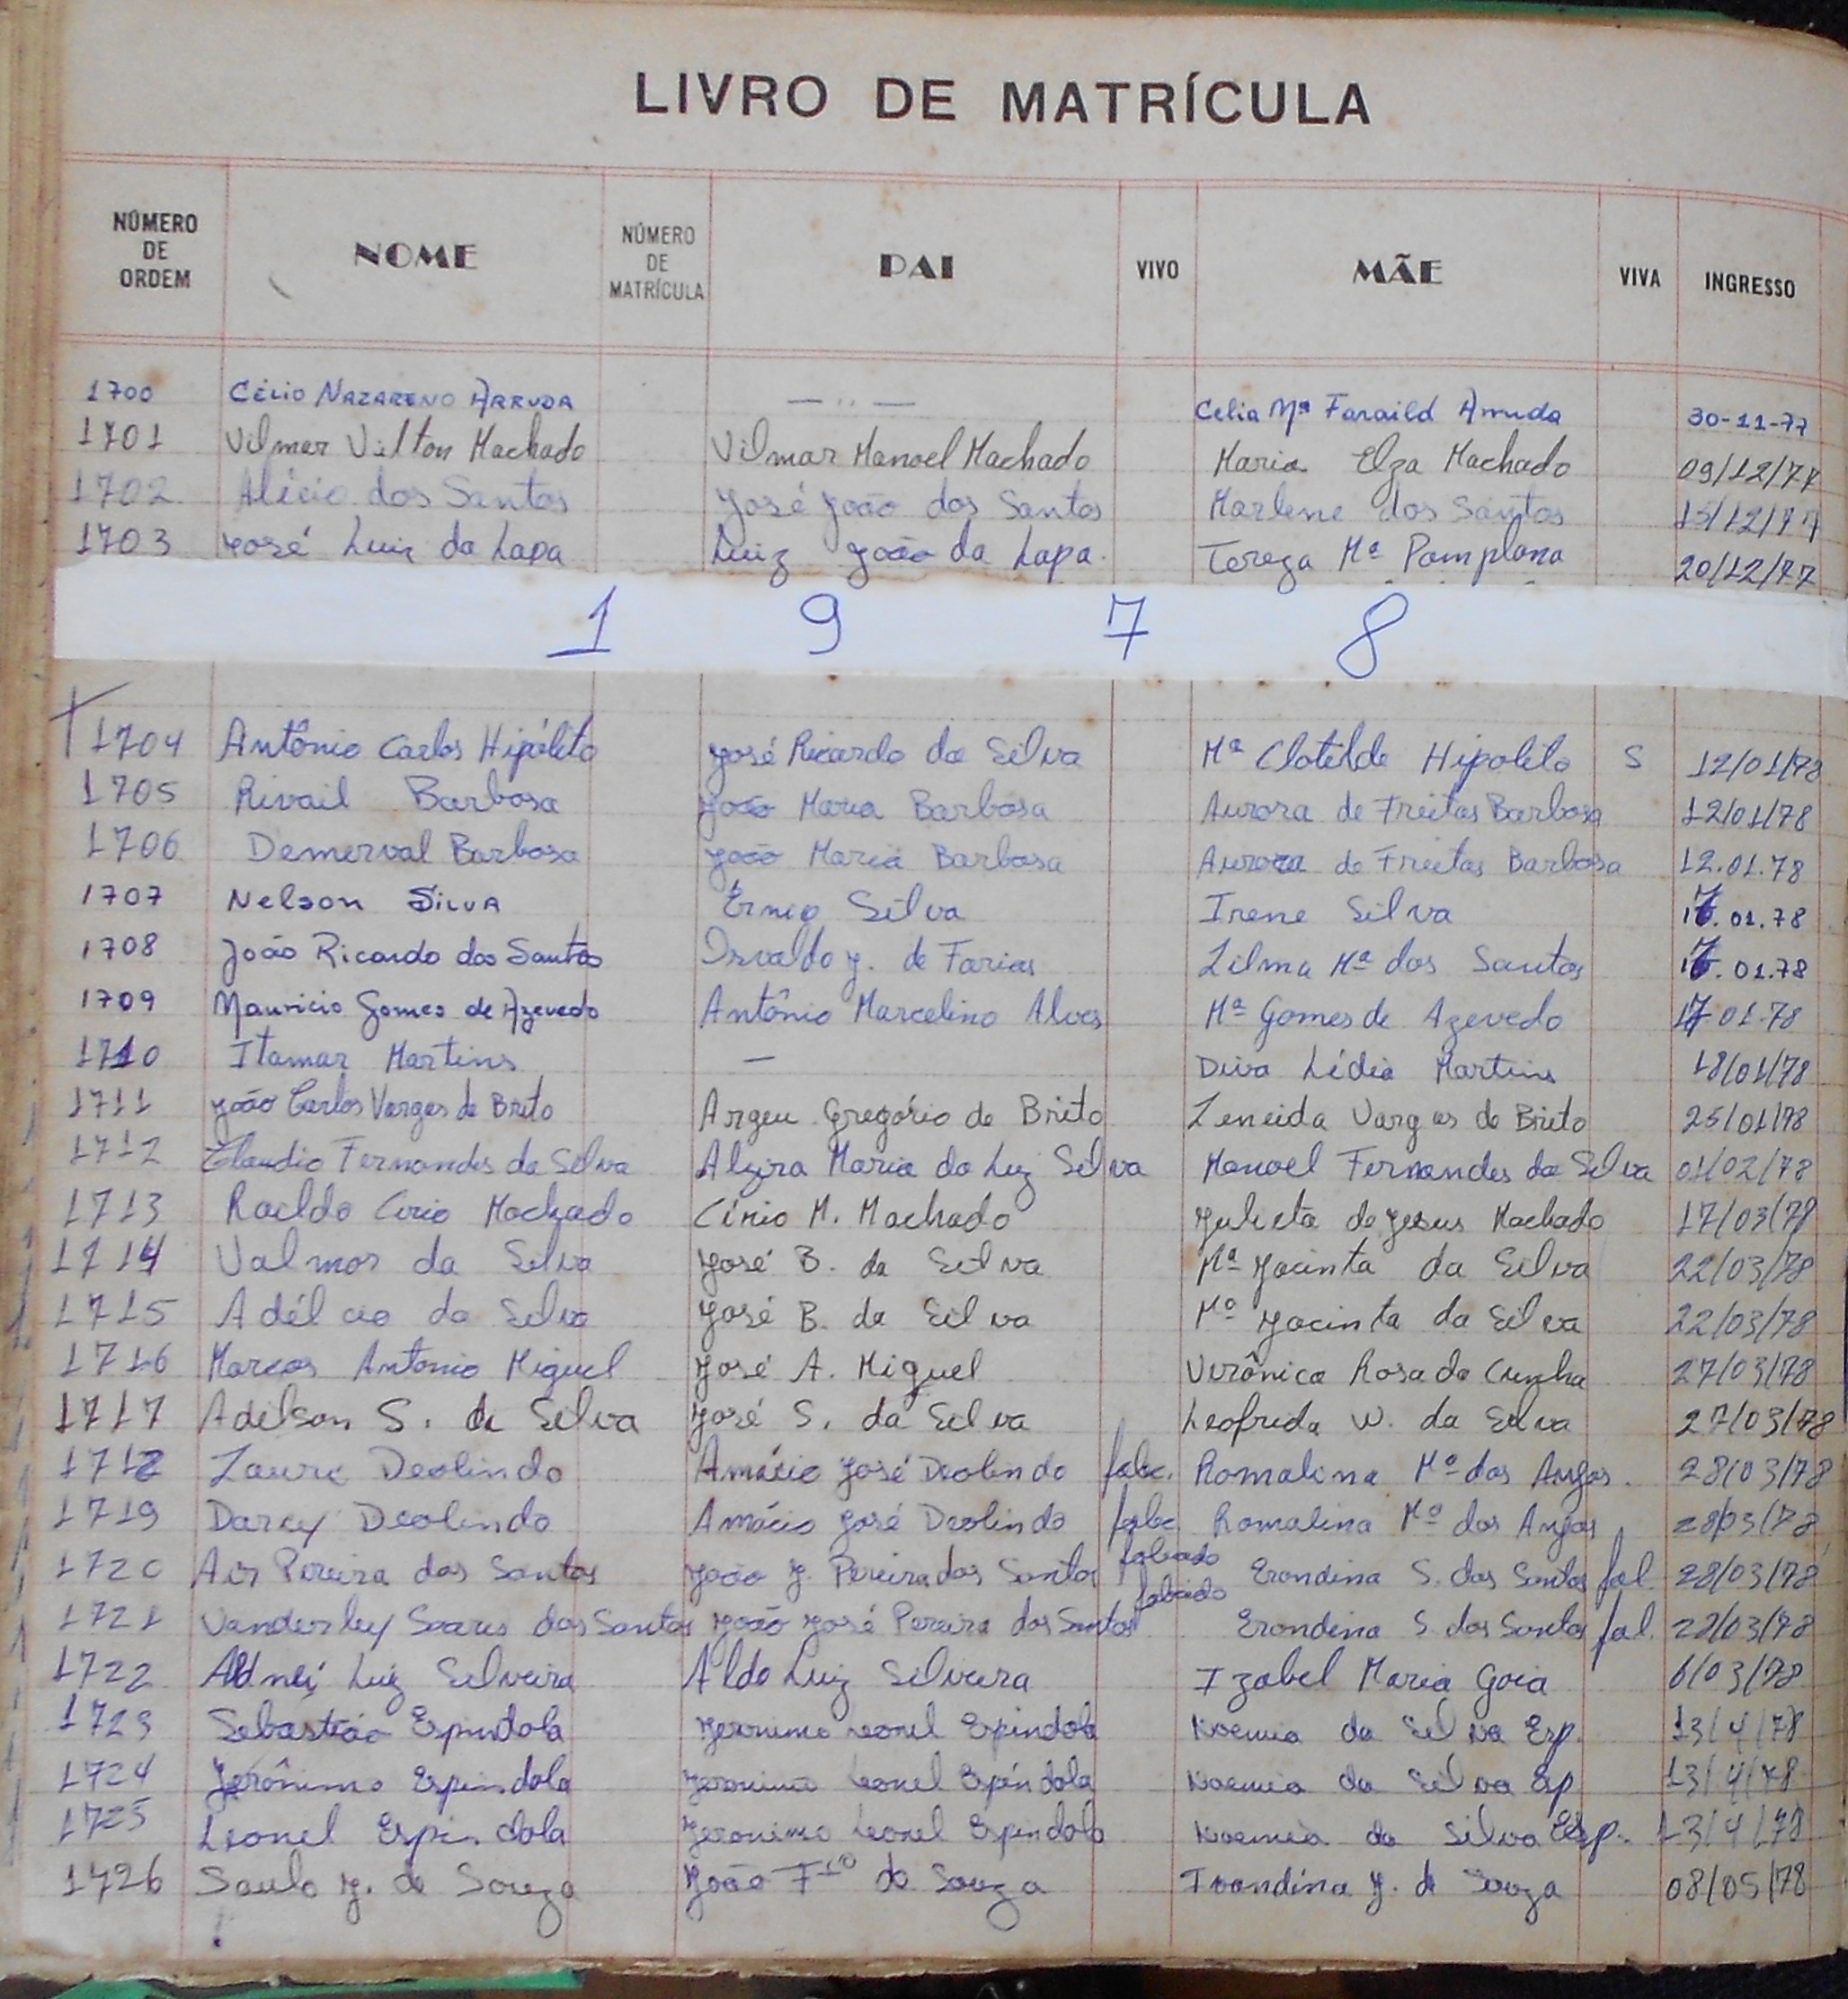 LIVRO DE MATRÍCULA
NÚMERO DE ORDEM NOME NÚMERO DE MATRÍCULA PAI VIVO MÃE VIVA INGRESSO
1700 CÉLIO NAZARENO ARRUDA — .. — Celia Mª Faraild Arruda 30-11-77
1701 Vilmar Vilton Machado Vilmar Manoel Machado Maria Elza Machado 09/12/77
1702 Alécio dos Santos José João dos Santos Marlene dos Santos 15/12/77
1703 José Luiz da Lapa Luiz João da Lapa. Tereza Mª Pamplona 20/12/77
1 9 7 8
1704 Antônio Carlos Hipólito José Ricardo da Silva Mª Clotilde Hipolito S 12/01/78
1705 Rivail Barbosa João Maria Barbosa Aurora de Freitas Barbosa 12/01/78
1706 Demerval Barbosa João Maria Barbosa Aurora de Freitas Barbosa 12.01.78
1707 Nelson SILVA Silva Irene Silva 17.01.78
1708 João Ricardo dos Santos Osvaldo J. de Farias Zilma Mª dos Santos 17.01.78
1709 Mauricio Gomes de Azevedo Antônio Marcelino Alves Mª Gomes de Azevedo 17.01.78
1710 Itamar Martins — Diva Lídia Martins 18/01/78
1711 João Carlos Vargas de Brito Argeu Gregório de Brito Zeneida Vargas de Brito 25/01/78
1712 Claudio Fernandes da Silva Alzira Maria da Luz Silva Manoel Fernandes da Silva 01/02/78
1713 Raildo Cirio Machado Círio M. Machado Julieta de Jesus Machado 17/03/78
1714 Valmor da Silva José B. da Silva Mª Jacinta da Silva 22/03/78
1715 Adélcio da Silva José B. da Silva Mª Jacinta da Silva 22/03/78
1716 Marcos Antonio Miguel José A. Miguel Verônica Rosa da Cunha 27/03/78
1717 Adelson S. da Silva José S. da Silva Leofrida W. da Silva 27/03/78
1718 Lauri Deolindo Amácio José Deolindo falec. Romalina Mª dos Anjos. 28/03/78
1719 Darcy Deolindo Amácio José Deolindo falec Romalina Mª dos Anjos 28/03/78
1720 Pereira dos Santos João J. Pereira dos Santos falecido Erondina S. dos Santos fal. 28/03/78
1721 Vanderley Soares dos Santos João José Pereira dos Santos falecido Erondina S. dos Santos fal. 28/03/78
1722 Aldnei Luiz Silveira Aldo Luiz Silveira Izabel Maria Goia 6/03/78
1723 Sebastião Espindola Jeronimo Leonel Espindola Noemia da Silva Esp. 13/4/78
1724 Jerônimo Espindola Jeronimo Leonel Espíndola Noemia da Silva Esp 13/4/78
1725 Leonel Espindola Jeronimo Leonel Espindola Noemia da Silva Esp. 13/4/78
1726 Saulo J. de Souza João Fco de Souza Ivandina J. de Souza 08/05/78